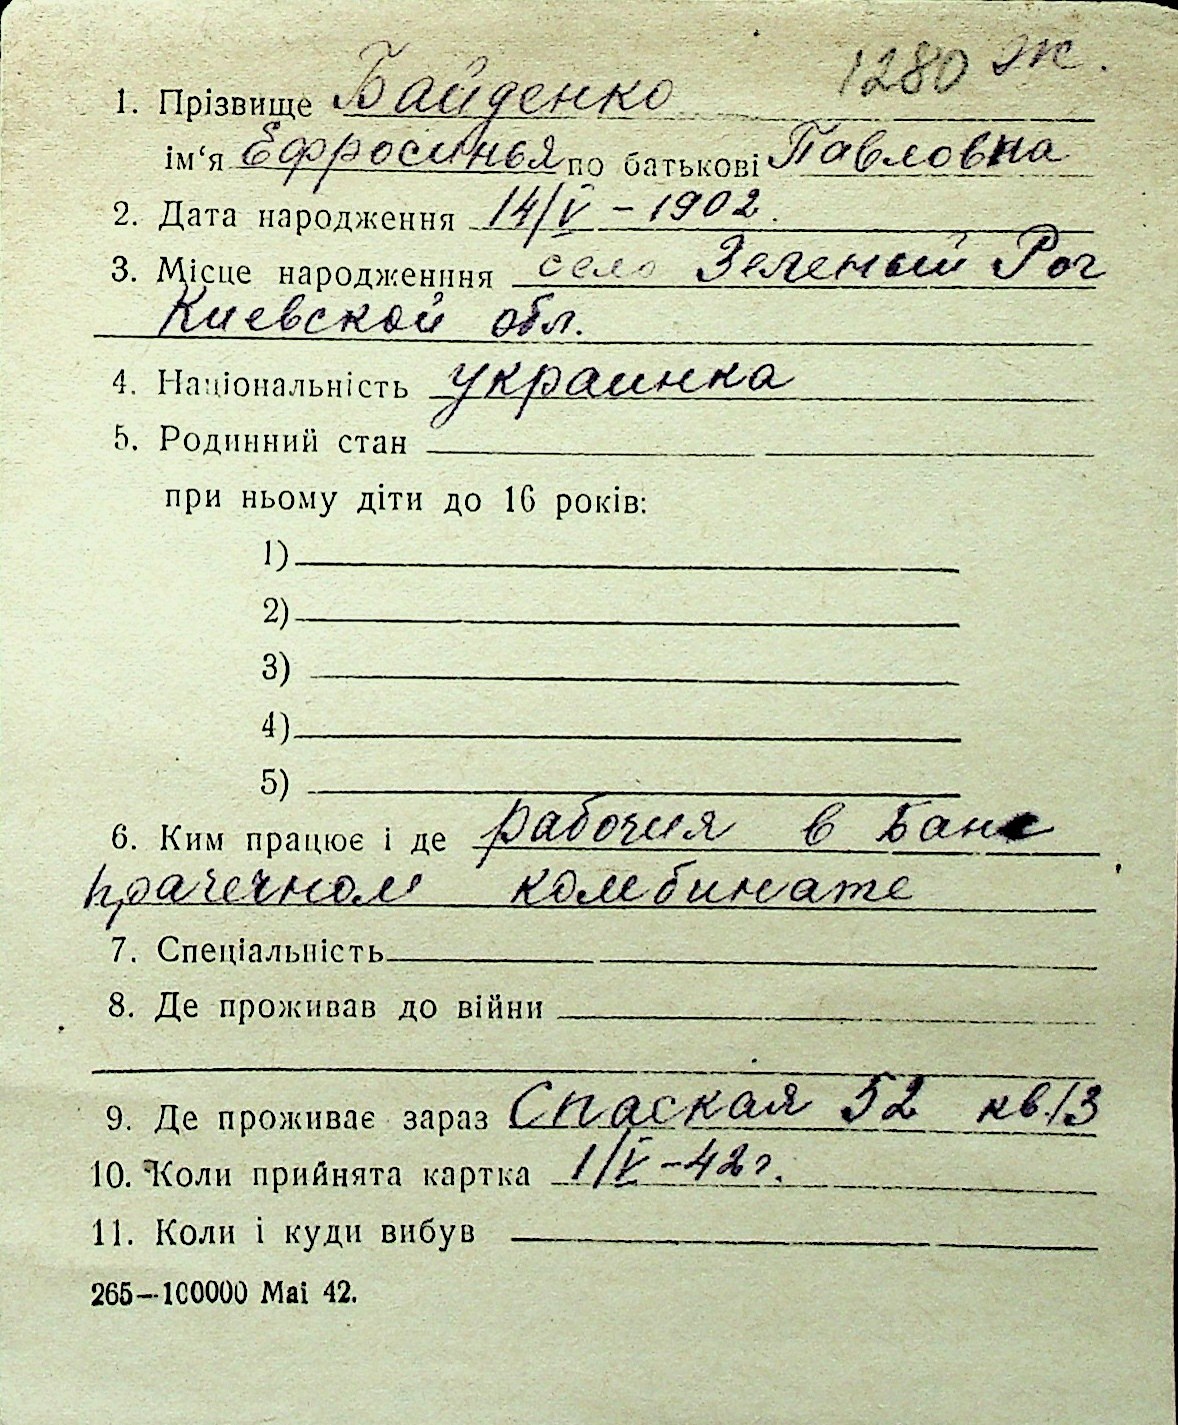 1280 Ж.
1. Прізвище Байденко
ім‘я Ефросинья по батькові Павловна
2. Дата народження 14/V – 1902.
3. Місце народженння село Зеленый Рог
Киевской обл.
4. Національність украинка
5. Родинний стан
при ньому діти до 16 років:
1)
2)
3)
4)
5)
6. Ким працює і де рабочия в Банс
прачечном комбинате
7. Спеціальність
8. Де проживав до війни
9. Де проживає зараз Спаская 52 кв. 13
10. Коли прийнята картка 1/V – 42 г.
11. Коли і куди вибув
265—100000 Mai 42.